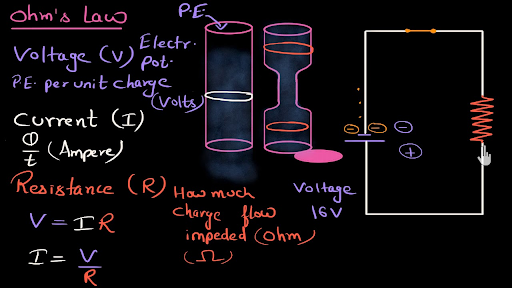 Ohm's Law
P.E.
Voltage (V) Electr. Pot.
P.E. per unit charge (Volts)
Current (I)
Q/t (Ampere)
Resistance (R) How much charge flow impeded (Ohm) (Ω)
V = I R
I = V/R
Voltage
16V
− − −
+